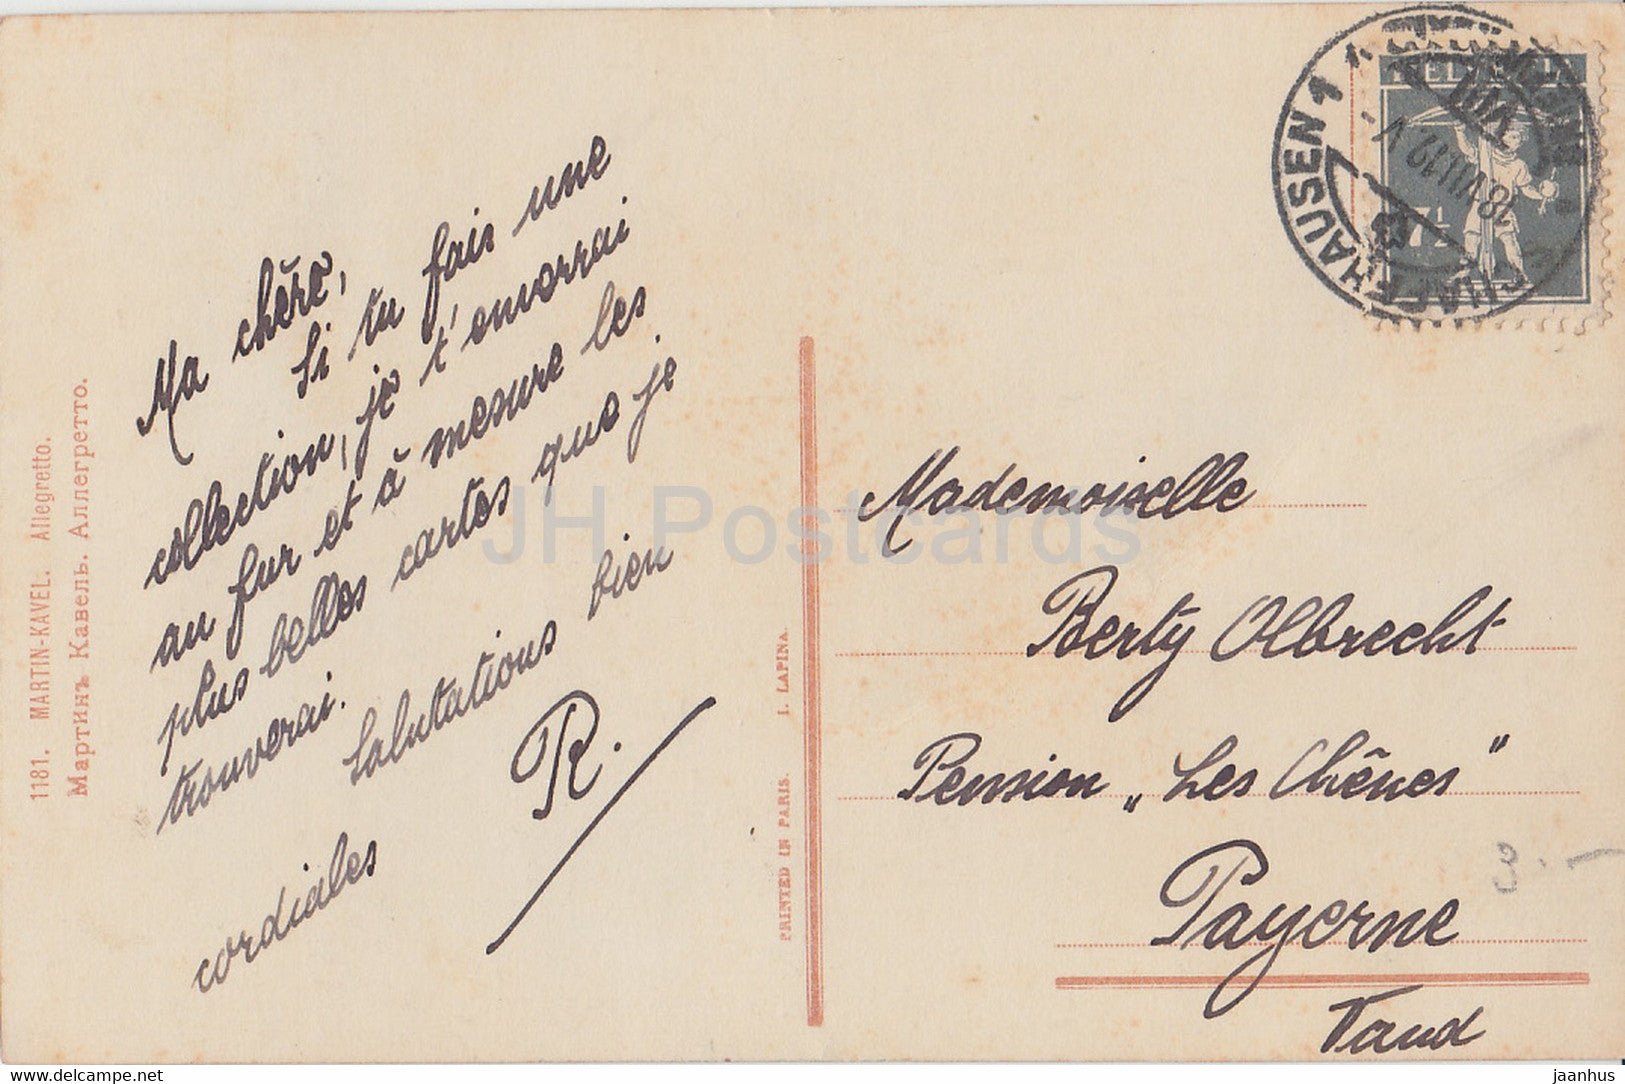 1181. MARTIN-KAVEL. Allegretto.
Мартинъ Кавель. Аллегретто.
Ma chère,
Si tu fais une
collection, je t'enverrai
au fur et à mesure les
plus belles cartes que je
trouverai.
Salutations bien
cordiales
R.
PRINTED IN PARIS. I. LAPINA.
HELVETIA
7½
SCHAFFHAUSEN 1
18.VIII.19.V
Mademoiselle
Berty Olbrecht
Pension „Les Chênes"
Payerne
Vaud
3.-
JH Postcards
www.delcampe.net
jaanhus